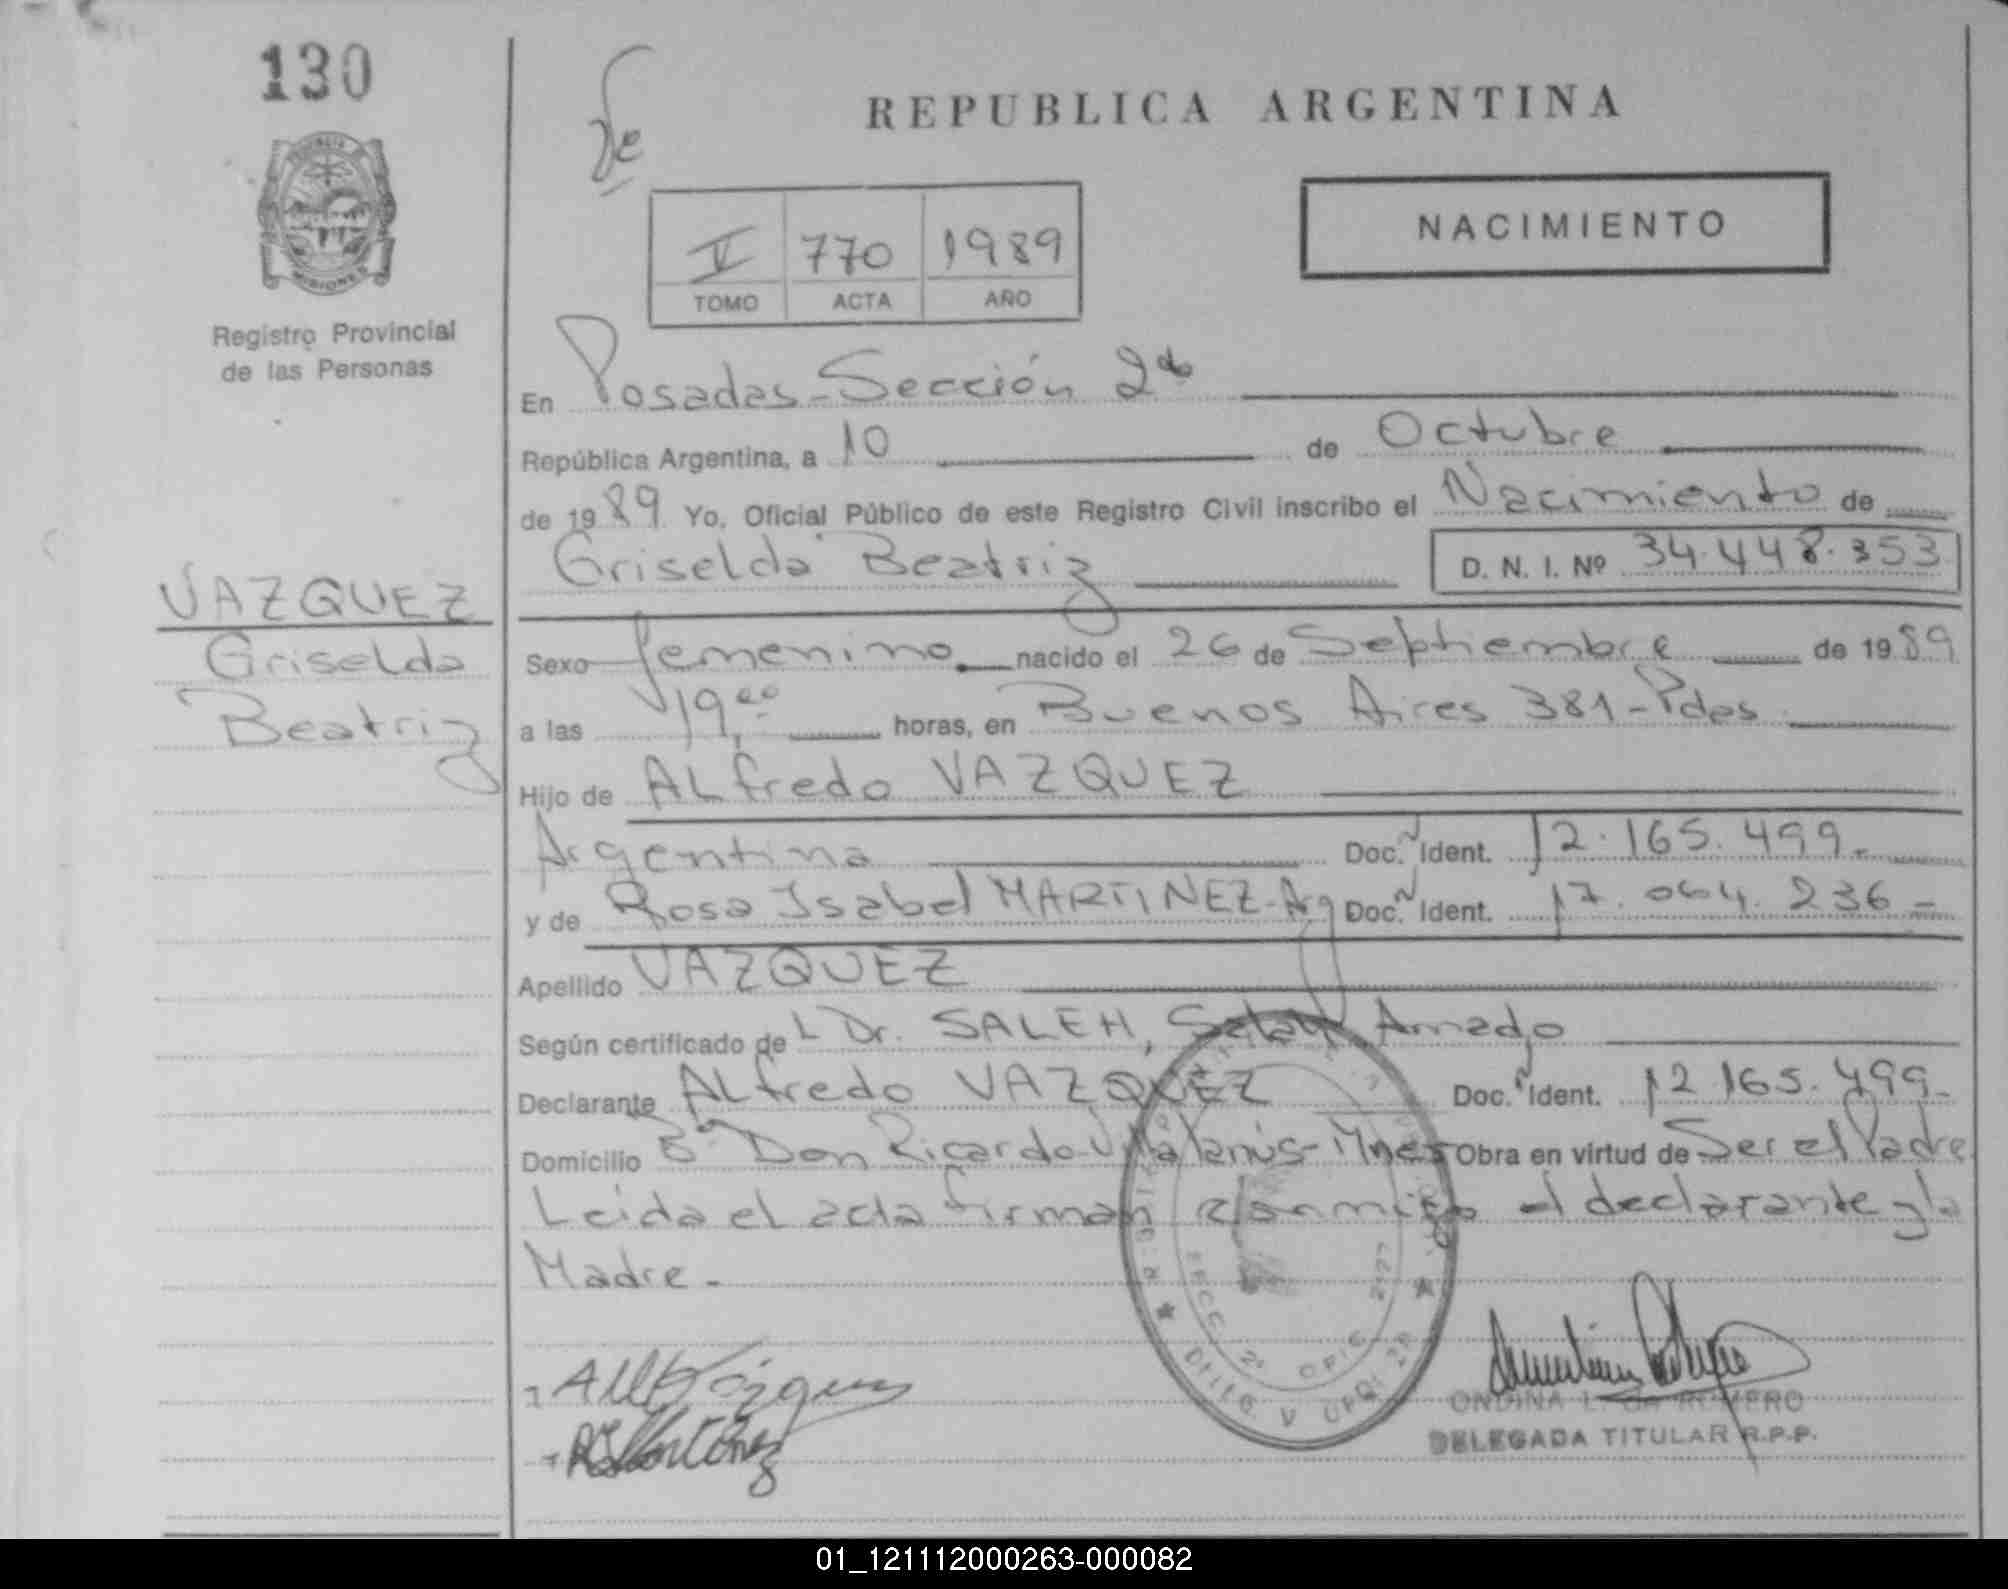 130
REPUBLICA ARGENTINA
NACIMIENTO
V 770 1989
TOMO ACTA AÑO
MISIONES
Registro Provincial
de las Personas
En Posadas-Sección 2da
República Argentina, a 10 de Octubre
de 1989 Yo, Oficial Público de este Registro Civil inscribo el Nacimiento de
Griselda Beatriz D. N. I. Nº 34.448.353
VAZQUEZ
Griselda
Beatriz
Sexo femenino nacido el 26 de Septiembre de 1989
a las 19,00 horas, en Buenos Aires 381-Pdas
Hijo de ALfredo VAZQUEZ
Argentina Doc. Ident. 12.165.499-
y de Rosa Isabel MARTINEZ-Arg Doc. Ident. 17.064.236-
Apellido VAZQUEZ
Según certificado de L Dr. SALEH, Amado
Declarante ALfredo VAZQUEZ Doc. Ident. 12.165.499-
Domicilio Bº Don Ricardo-Mnes Obra en virtud de Ser el Padre
Leida el acta firman conmigo el declarante y la
Madre.-
SECC. 2ª OFIC.
ONDINA L. de ROMERO
DELEGADA TITULAR R.P.P.
01_121112000263-000082